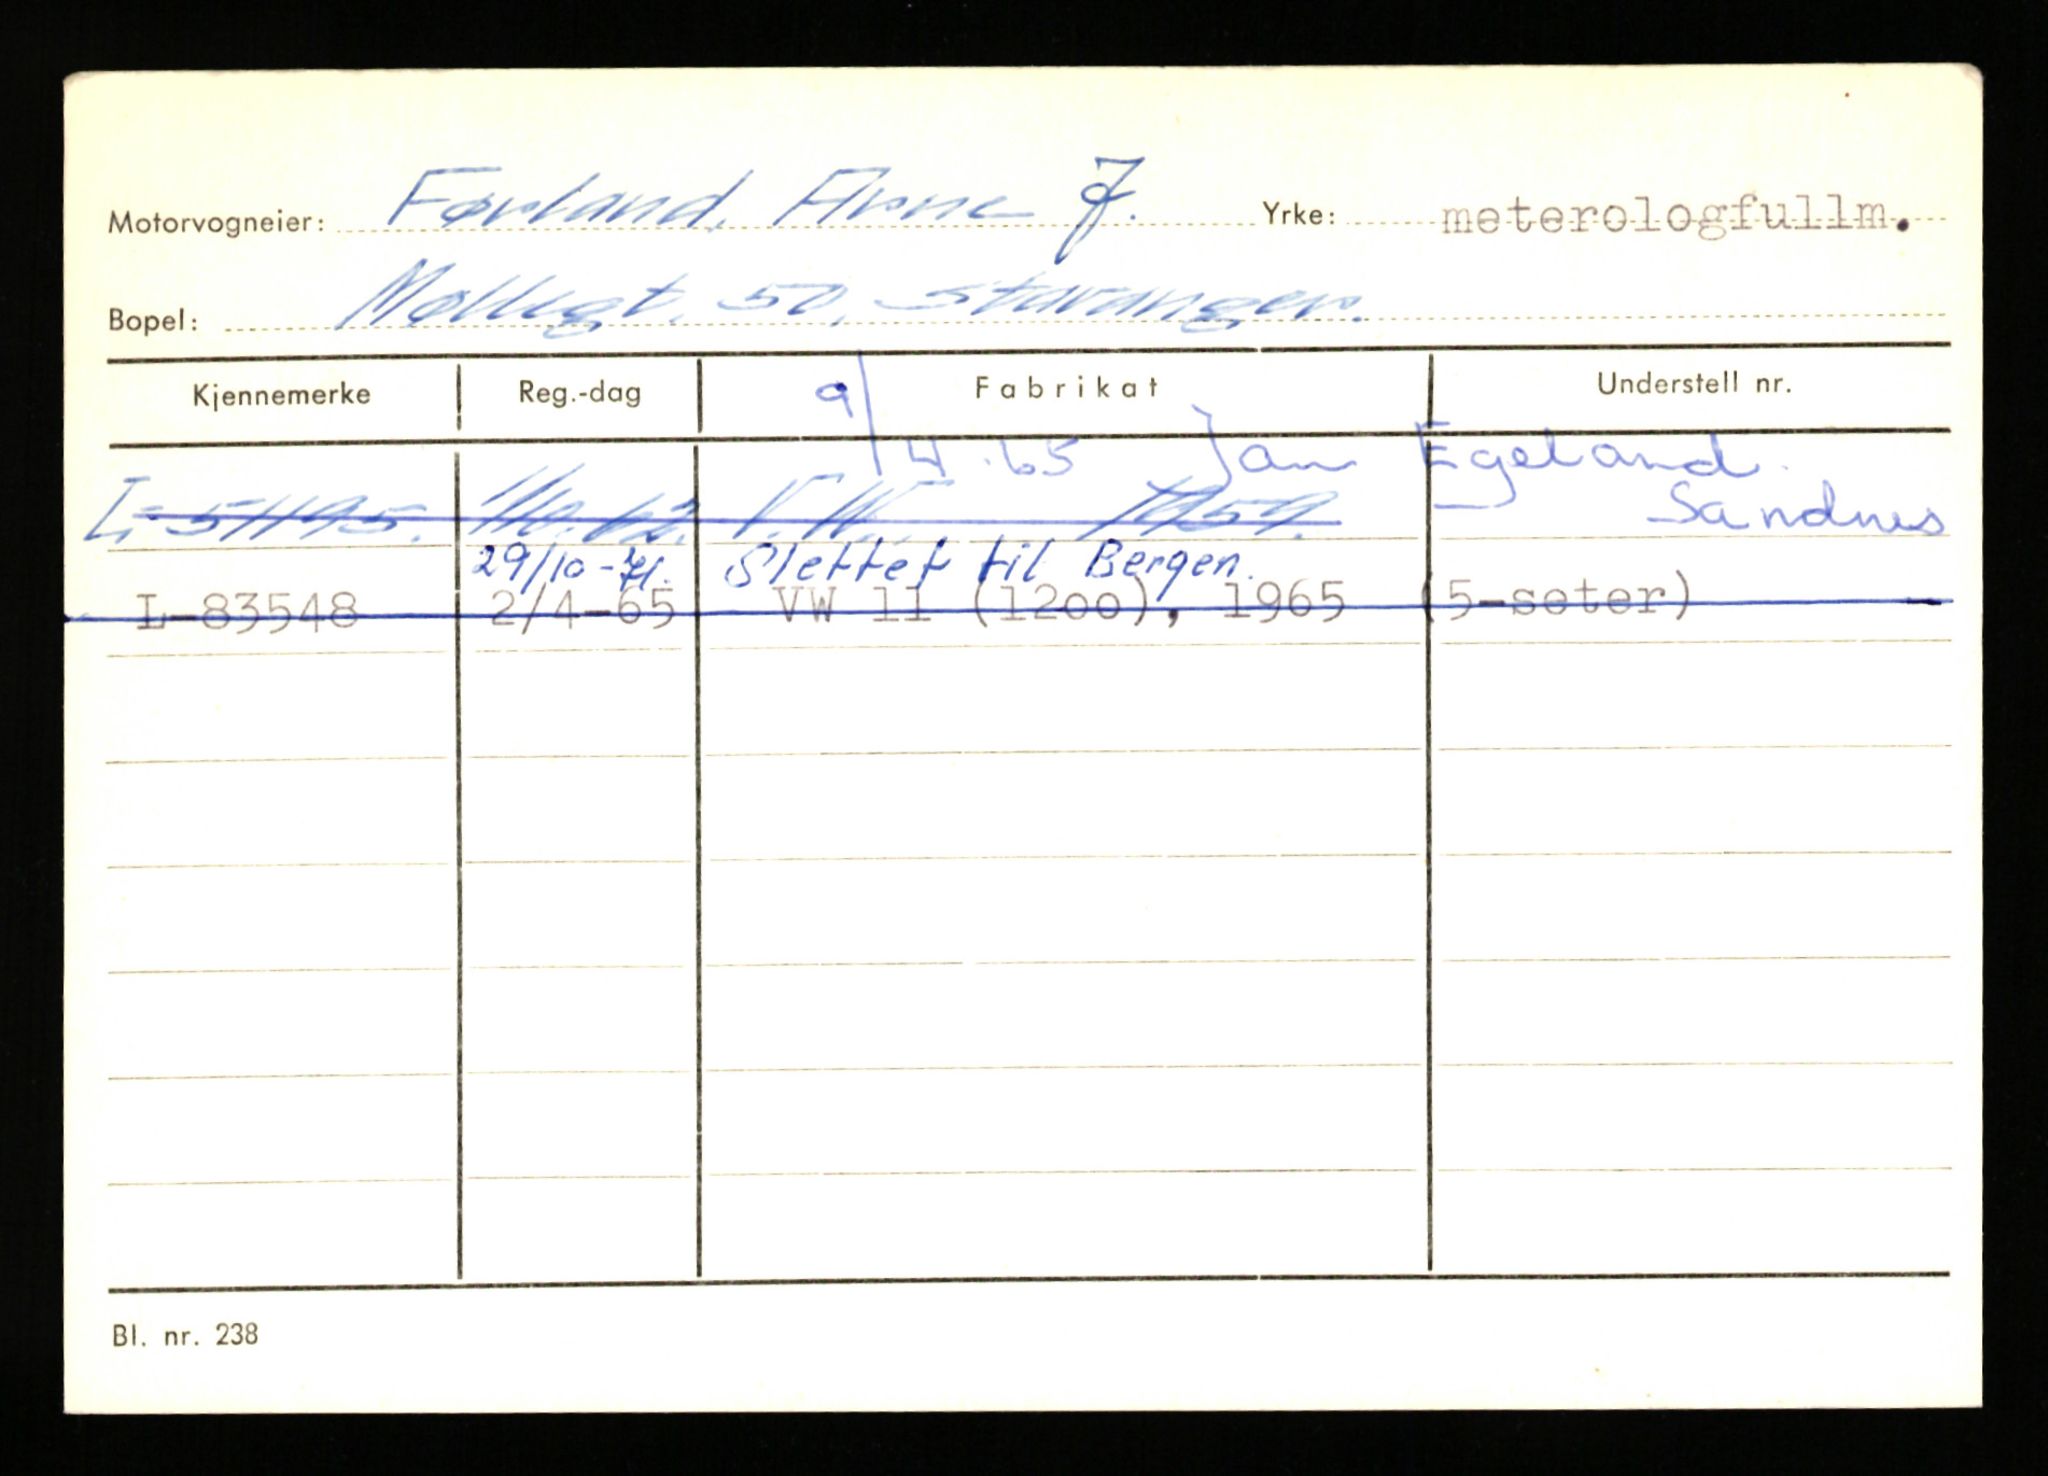 Motorvogneier: Førland, Arne J. Yrke: meterologfullm.
Bopel: Møllegt. 50, Stavanger.
Kjennemerke Reg.-dag Fabrikat Understell nr.
9/4.65 Jan Egeland.
Sandnes
L-51195. 1/10.62. V.W. 1959.
29/10-71. Slettet til Bergen.
L-83548 2/4-65 VW 11 (1200), 1965 (5-seter)
Bl. nr. 238